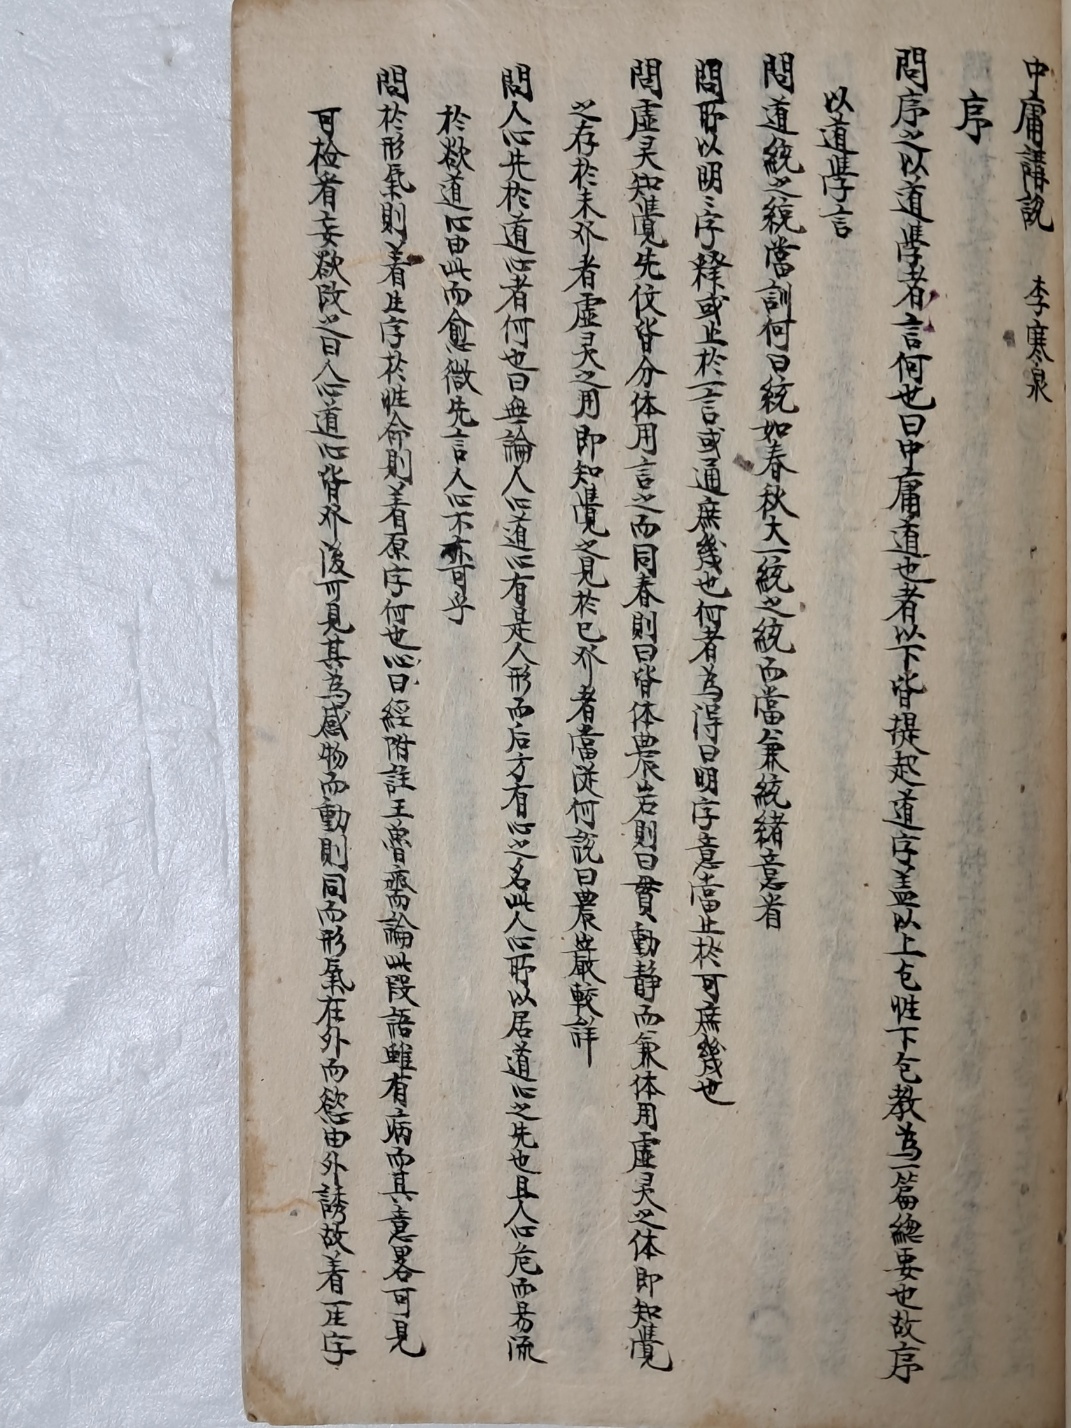 中庸講說 李寒泉
序
問序之以道學者言何也曰中庸道也者以下皆提起道字盖以上包性下包教為一篇總要也故序
以道學言
問道統之統當訓何曰統如春秋大一統之統而當兼統緒意看
問所以明明字釋或止於一言或通庶幾也何者為得曰明字意當止於可庶幾也
問虛灵知覺先仗皆分体用言之而同春則曰皆体農岩則曰貫動静而兼体用虛灵之体即知覺
之存於未發者虛灵之用即知覺之見於已發者當從何說曰農岩嚴較詳
問人心先於道心者何也曰無論人心道心有是人形而后方有心之名此人心所以居道心之先也且人心危而易流
於欲道心由此而愈微先言人心不亦可乎
問於形氣則着生字於性命則着原字何也心曰經附註王魯齋論此段語雖有病而其意畧可見
可檢看妄欲改之曰人心道心皆發後可見其為感物而動則同而形氣在外而慾由外誘故着一生字